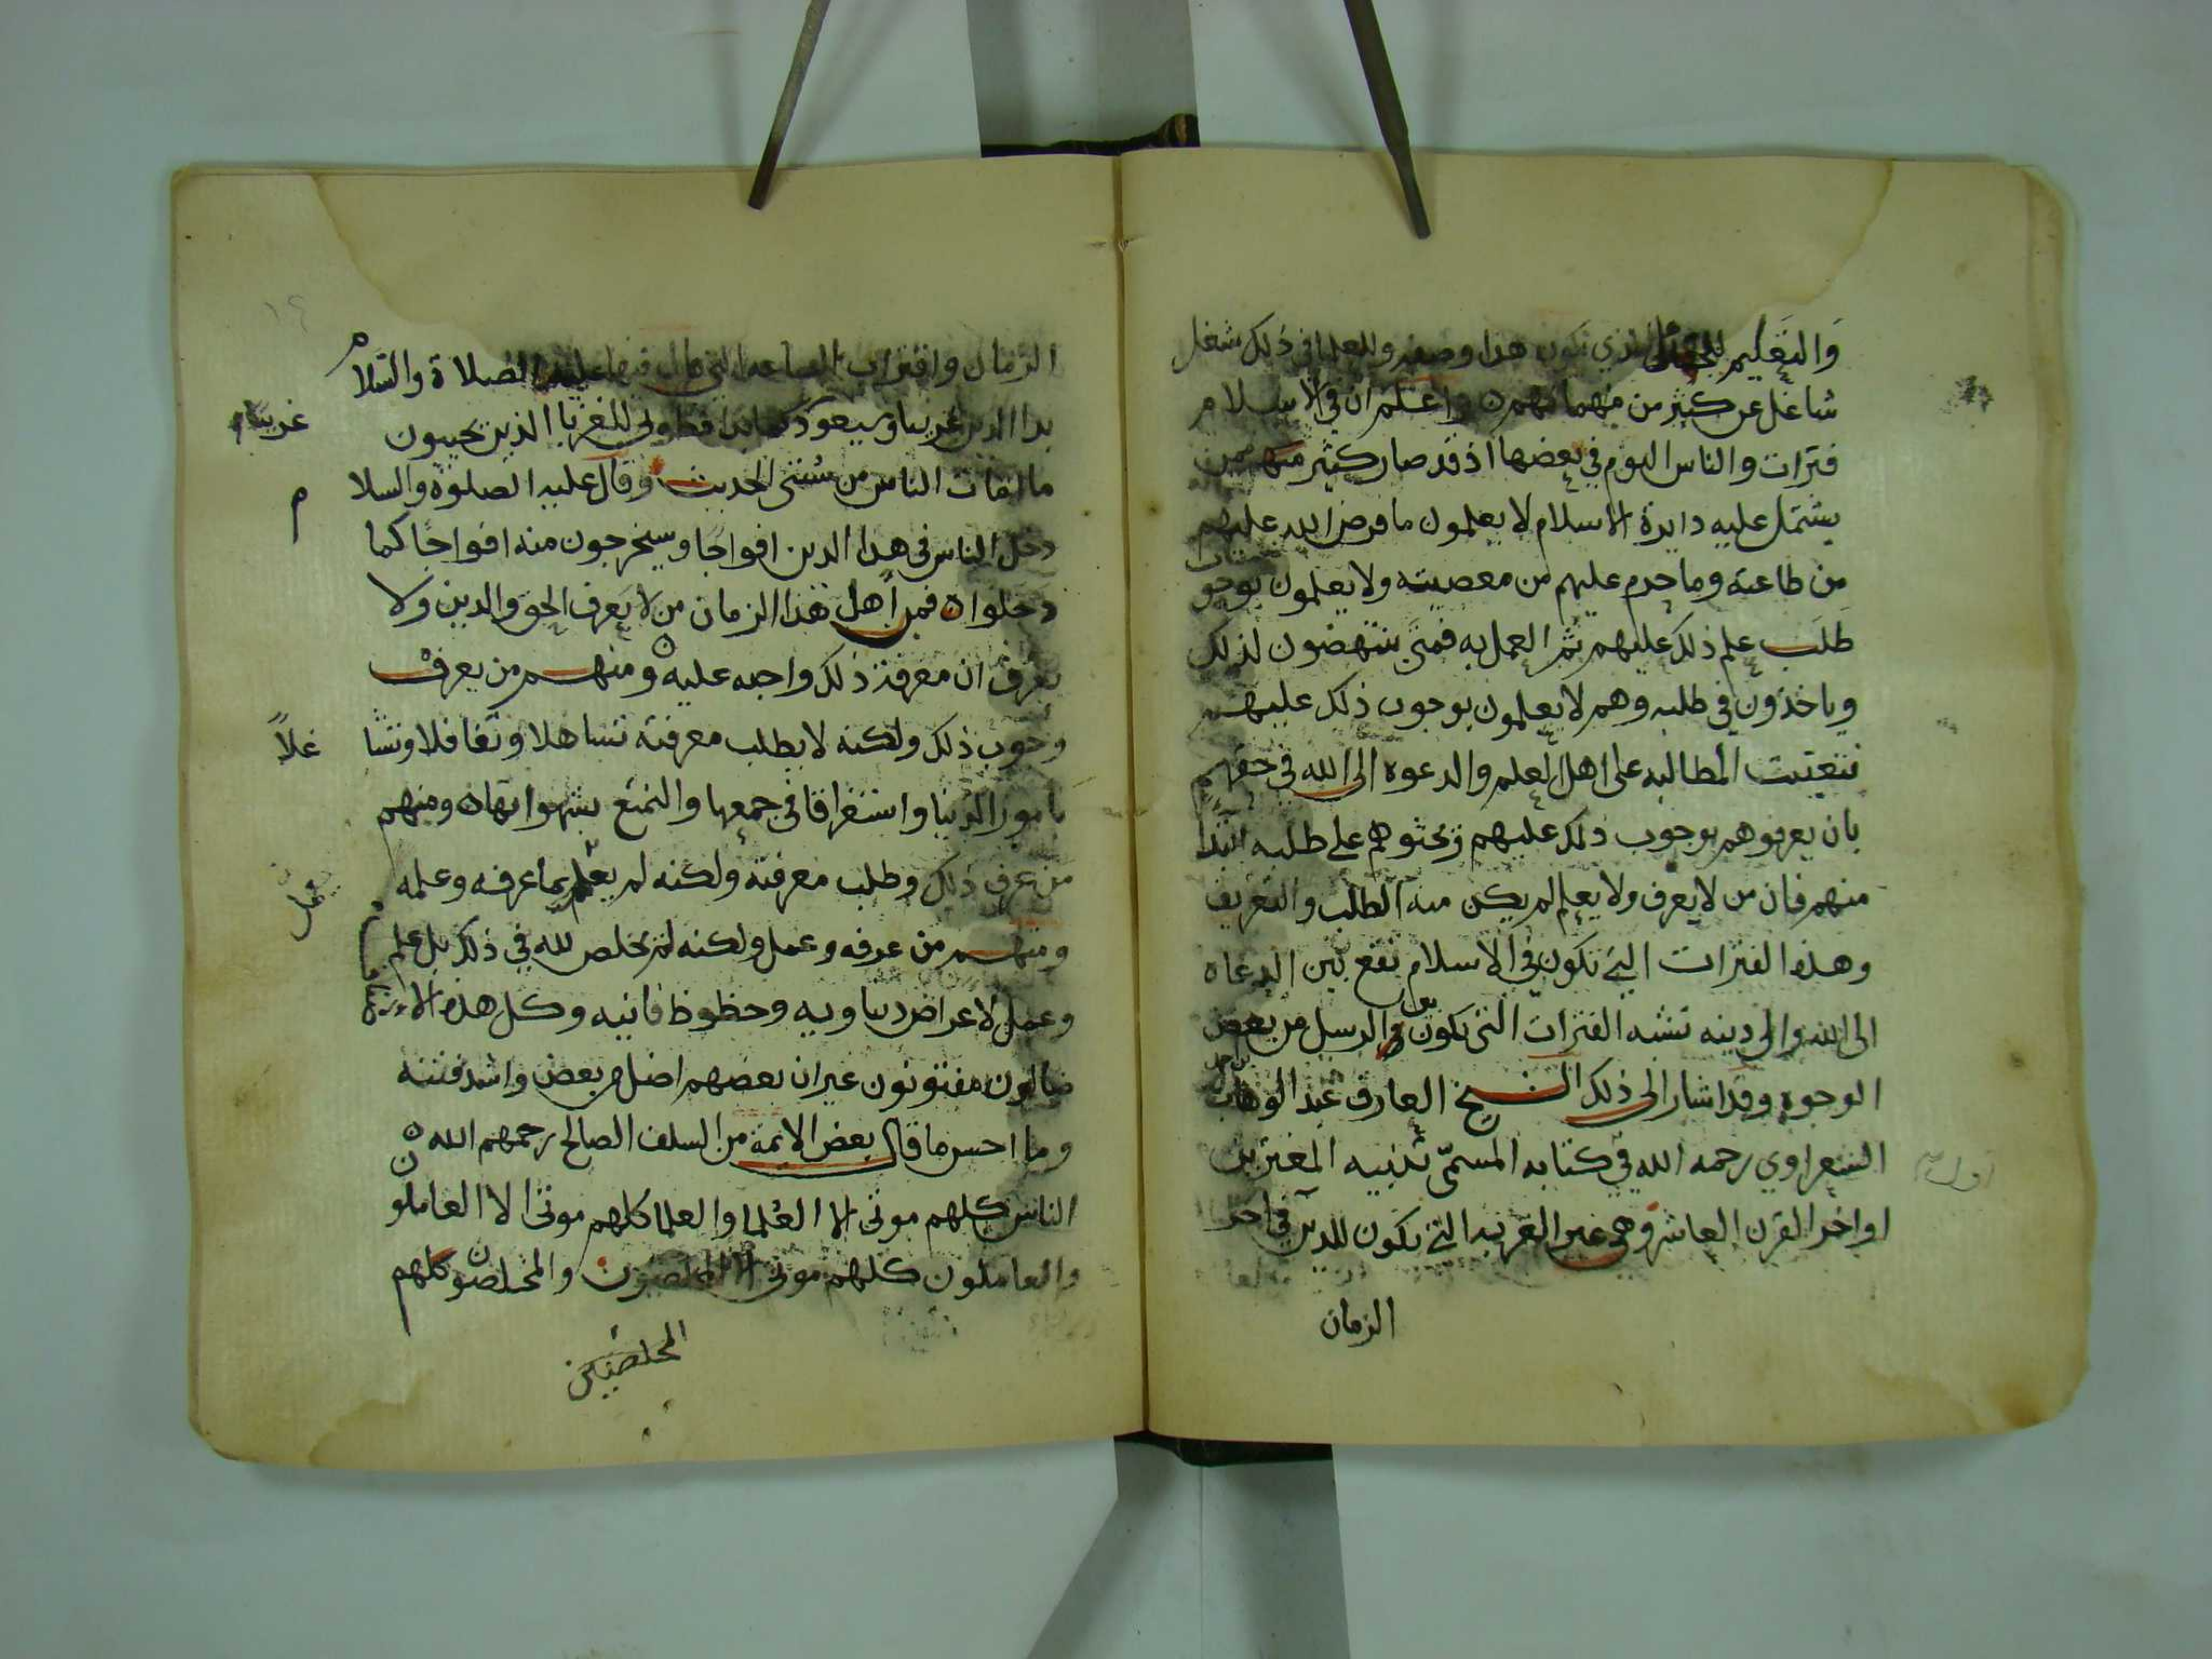 والتعليم للجاهل الذي تكون هذا وصفه وللعلما في ذلك شغل
شاغل عن كثير من مهماتهم ه واعلم ان في الاسلام
فترات والناس اليوم في بعضها اذ قد صار كثير منهم ممن
يشتمل عليه دايرة الاسلام لا يعلمون ما فرض الله عليهم
من طاعته وما حرم عليهم من معصيته ولا يعلمون بوجو
طلب علم ذلك عليهم ثم العمل به فمتى ينتهضون لذلك
وياخذون في طلبه وهم لا يعلمون بوجوب ذلك عليهم
فتعينت المطالبه على اهل العلم والدعوه الى الله في حقهم
بان يعرفوهم بوجوب ذلك عليهم ويحثوهم على طلبه ابتدا
منهم فان من لا يعرف ولا يعلم لم يكن منه الطلب والتعريف
وهذه الفترات التي تكون في الاسلام تقع بين الدعاه
الى الله والى دينه تشبه الفترات التي تكون بين الرسل من بعض
الوجوه وقد اشار الى ذلك الشيخ العارف عبد الوهاب
الشعراوي رحمه الله في كتابه المسمى تنبيه المغترين
اواخر القرن العاشر وهي غير الغربه التي تكون للدين في اخر
الزمان
الزمان واقتراب الساعه التي قال فيها عليه الصلاة والسلام
بدا الدين غريبا وسيعود كما بدا فطوبى للغربا الذين يحيون
غريبا
ما افات الناس من سنتي الحديث وقال عليه الصلوة والسلا
م
دخل الناس في هذا الدين افواجا وسيخرجون منه افواجا كما
دخلوا ه فمن اهل هذا الزمان من لا يعرف الحق والدين ولا
يعرف ان معرفة ذلك واجبه عليه ه ومنهم من يعرف
وجوب ذلك ولكنه لا يطلب معرفته تساهلا وتغافلا وتشا
غلاً
بامور الدنيا واستغراقا في جمعها والتمتع بشهواتها ه ومنهم
من عرف ذلك وطلب معرفته ولكنه لم يعلم بما عرفه وعلمه
يعمل
ومنهم من عرفه وعمل ولكنه لم يخلص لله في ذلك بل علم
وعمل لاعراض دنياويه وحظوظ فانيه وكل هذه الا
ضالون مفتونون غير ان بعضهم اضل من بعض واشد فتنه
وما احسن ما قال بعض الايمة من السلف الصالح رحمهم الله ه
الناس كلهم موتى الا العلما والعلما كلهم موتى الا العاملو
ن
والعاملون كلهم موتى الا المخلصون والمخلصون كلهم
المخلصين